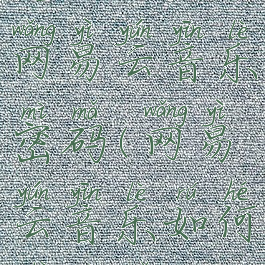 wǎng yì yún yīn lè
网易云音乐
mì mǎ ( wǎng yì
密码(网易
yún yīn lè rú hé
云音乐如何